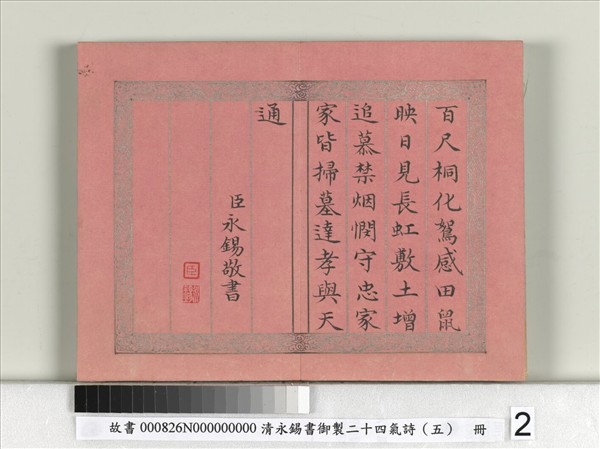 百尺桐化鴽感田鼠
映日見長虹敷土增
追慕禁烟憫守忠家
家皆掃墓達孝與天
通
臣永錫敬書
故書 000826N000000000 清永錫書御製二十四氣詩（五） 冊
2